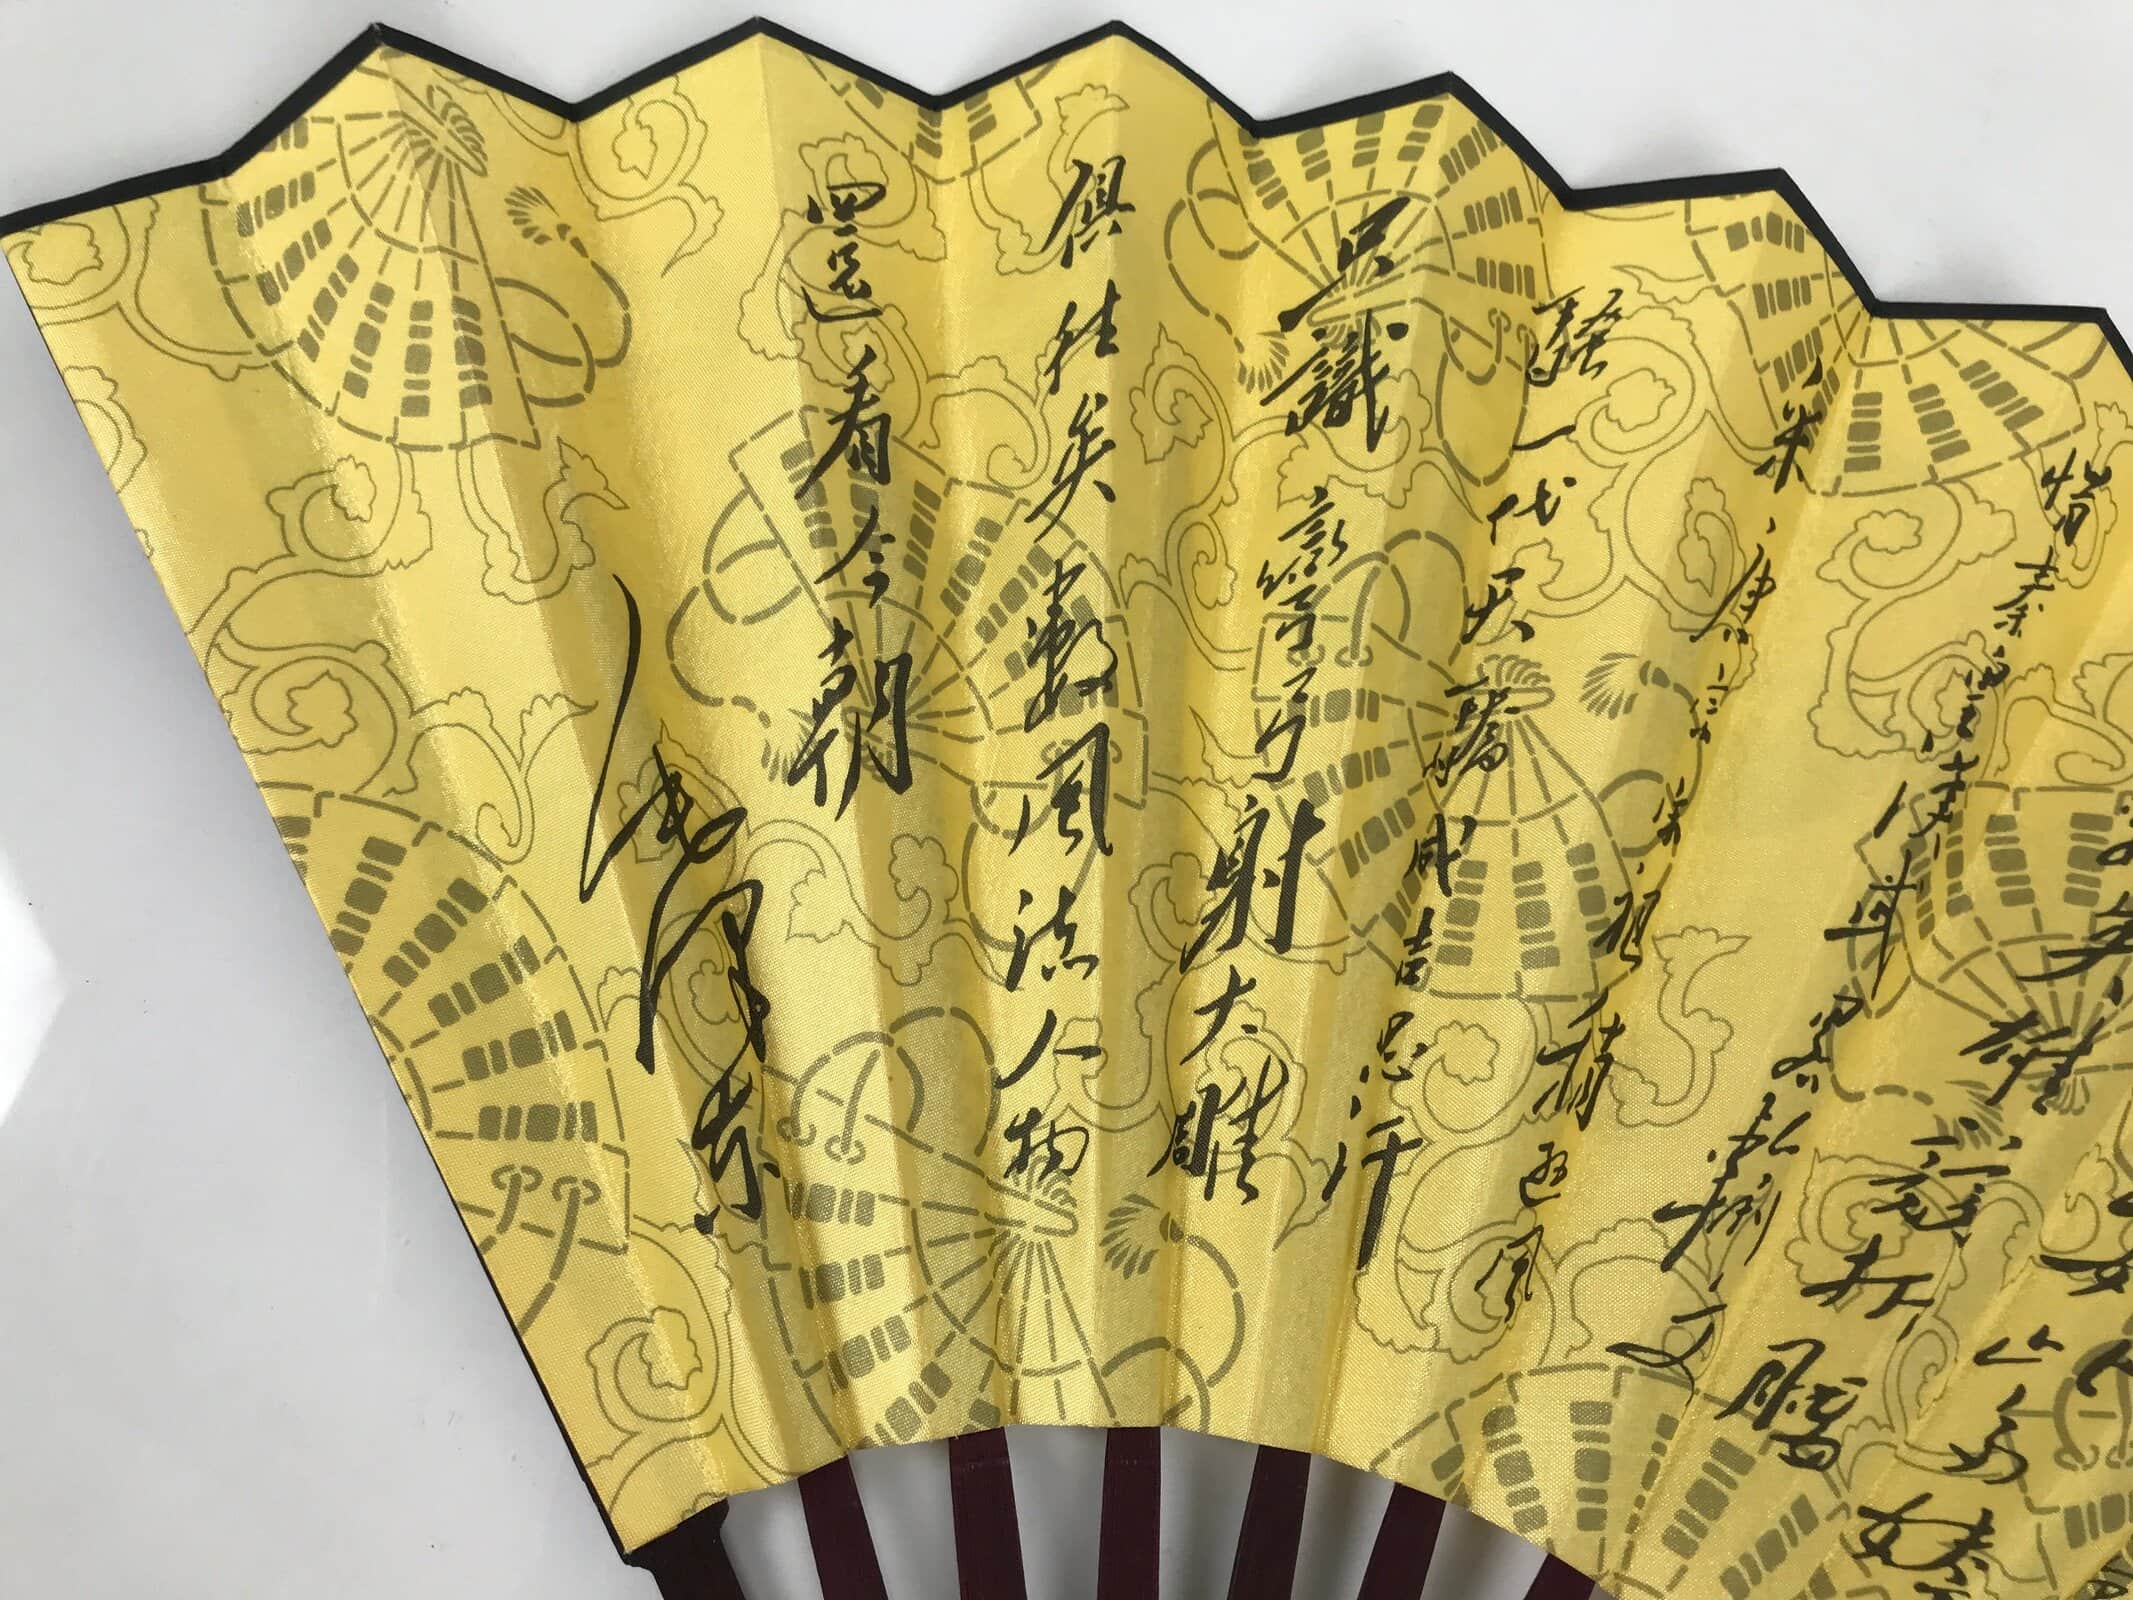 英雄競折腰
惜秦皇漢武略輸文
采唐宗宋祖稍遜風
騷一代天驕成吉思汗
只識彎弓射大雕
俱往矣數風流人物
還看今朝
毛澤東